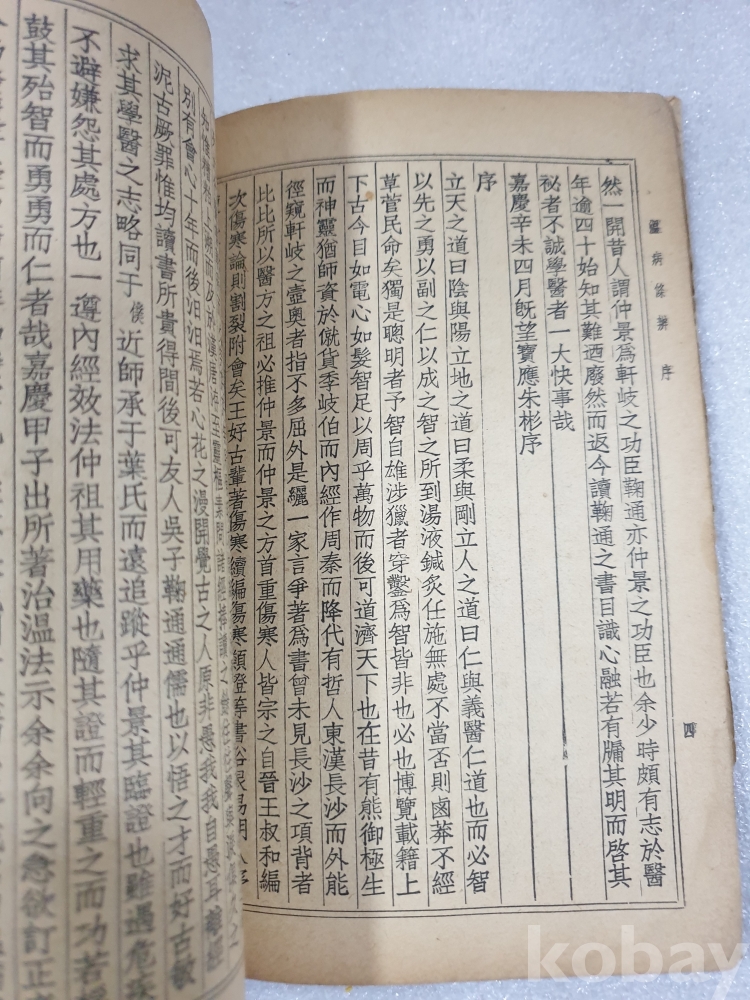 溫病條辨 序 四
然一開昔人謂仲景爲軒岐之功臣鞠通亦仲景之功臣也余少時頗有志於醫
年逾四十始知其難迺廢然而返今讀鞠通之書目識心融若有牖其明而啓其
祕者不誠學醫者一大快事哉
嘉慶辛未四月旣望寶應朱彬序
序
立天之道曰陰與陽立地之道曰柔與剛立人之道曰仁與義醫仁道也而必智
以先之勇以副之仁以成之智之所到湯液鍼炙任施無處不當否則鹵莽不經
草菅民命矣獨是聰明者予智自雄涉獵者穿鑿爲智皆非也必也博覽載籍上
下古今目如電心如髮智足以周乎萬物而後可道濟天下也在昔有熊御極生
而神靈猶師資於僦貸季岐伯而內經作周秦而降代有哲人東漢長沙而外能
徑窺軒岐之壼奧者指不多屈外是纚一家言爭著爲書曾未見長沙之項背者
比比所以醫方之祖必推仲景而仲景之方首重傷寒人皆宗之自晉王叔和編
次傷寒論則割裂附會矣王好古輩著傷寒續編傷寒類證等書俗眼易明人
別有會心十年而後汨汨焉若心花之漫開覺古之人原非愚我我自愚耳離經
泥古厥罪惟均讀書所貴得間後可友人吳子鞠通通儒也以悟之才而好古敏
求其學醫之志略同于僕近師承于葉氏而遠追蹤乎仲景其臨證也雖遇危疾
不避嫌怨其處方也一遵內經效法仲祖其用藥也隨其證而輕重之而功若
鼓其殆智而勇勇而仁者哉嘉慶甲子出所著治溫法示余余向之急欲訂正
kobay